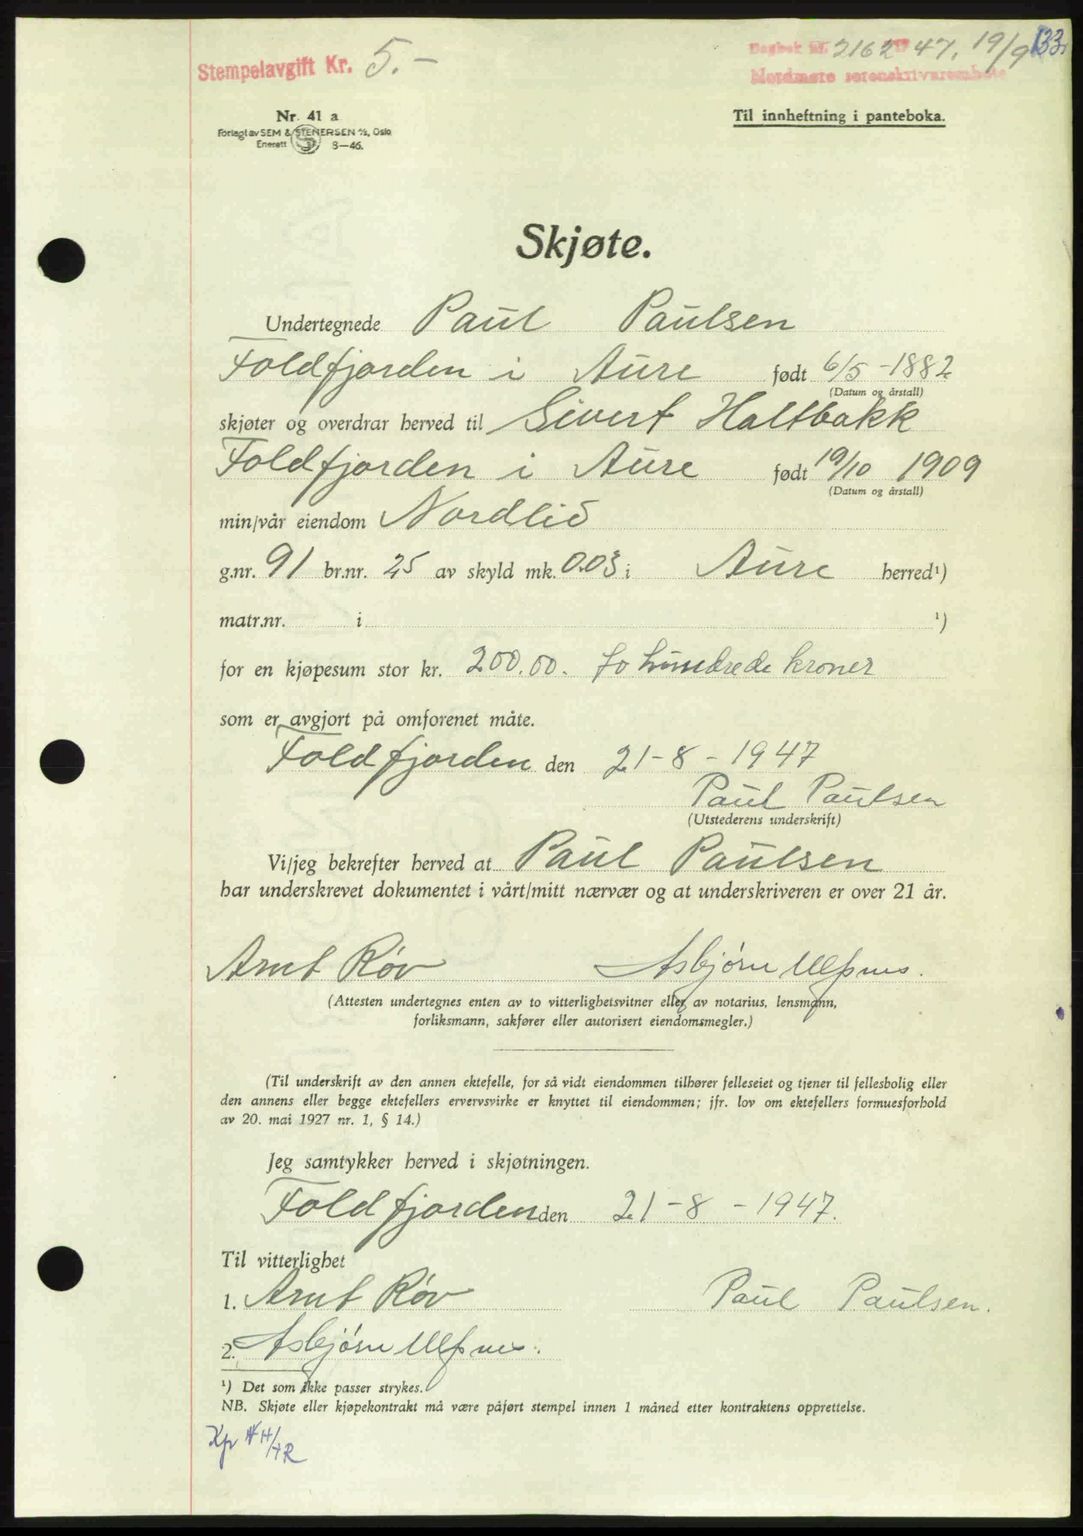 Stempelavgift Kr. 5.-
Dagbok nr. 2162 1947, 19/9 133
Nordmøre sorenskriverembete
Nr. 41 a
Forlagt av SEM & STENERSEN A/S, Oslo
Enerett S 8-46.
Til innheftning i panteboka.
Skjøte.
Undertegnede Paul Paulsen
Foldfjorden i Aure født 6/5-1882
(Datum og årstall)
skjøter og overdrar herved til Sivert Haltbakk
Foldfjorden i Aure født 19/10 1909
(Datum og årstall)
min/vår eiendom Nordlid
g.nr. 91 br.nr. 25 av skyld mk. 0.03 i Aure herred¹)
matr.nr. i ¹)
for en kjøpesum stor kr. 200.00. to hundrede kroner
som er avgjort på omforenet måte.
Foldfjorden den 21-8-1947
Paul Paulsen
(Utstederens underskrift)
Vi/jeg bekrefter herved at Paul Paulsen
har underskrevet dokumentet i vårt/mitt nærvær og at underskriveren er over 21 år.
Arnt Røv Asbjørn Ulfsnes.
(Attesten undertegnes enten av to vitterlighetsvitner eller av notarius, lensmann,
forliksmann, sakfører eller autorisert eiendomsmegler.)
(Til underskrift av den annen ektefelle, for så vidt eiendommen tilhører felleseiet og tjener til fellesbolig eller
den annens eller begge ektefellers ervervsvirke er knyttet til eiendommen; jfr. lov om ektefellers formuesforhold
av 20. mai 1927 nr. 1, § 14.)
Jeg samtykker herved i skjøtningen.
Foldfjorden den 21-8-1947.
Til vitterlighet
1. Arnt Røv Paul Paulsen.
2. Asbjørn Ulfsnes.
¹) Det som ikke passer strykes.
NB. Skjøte eller kjøpekontrakt må være påført stempel innen 1 måned etter kontraktens opprettelse.